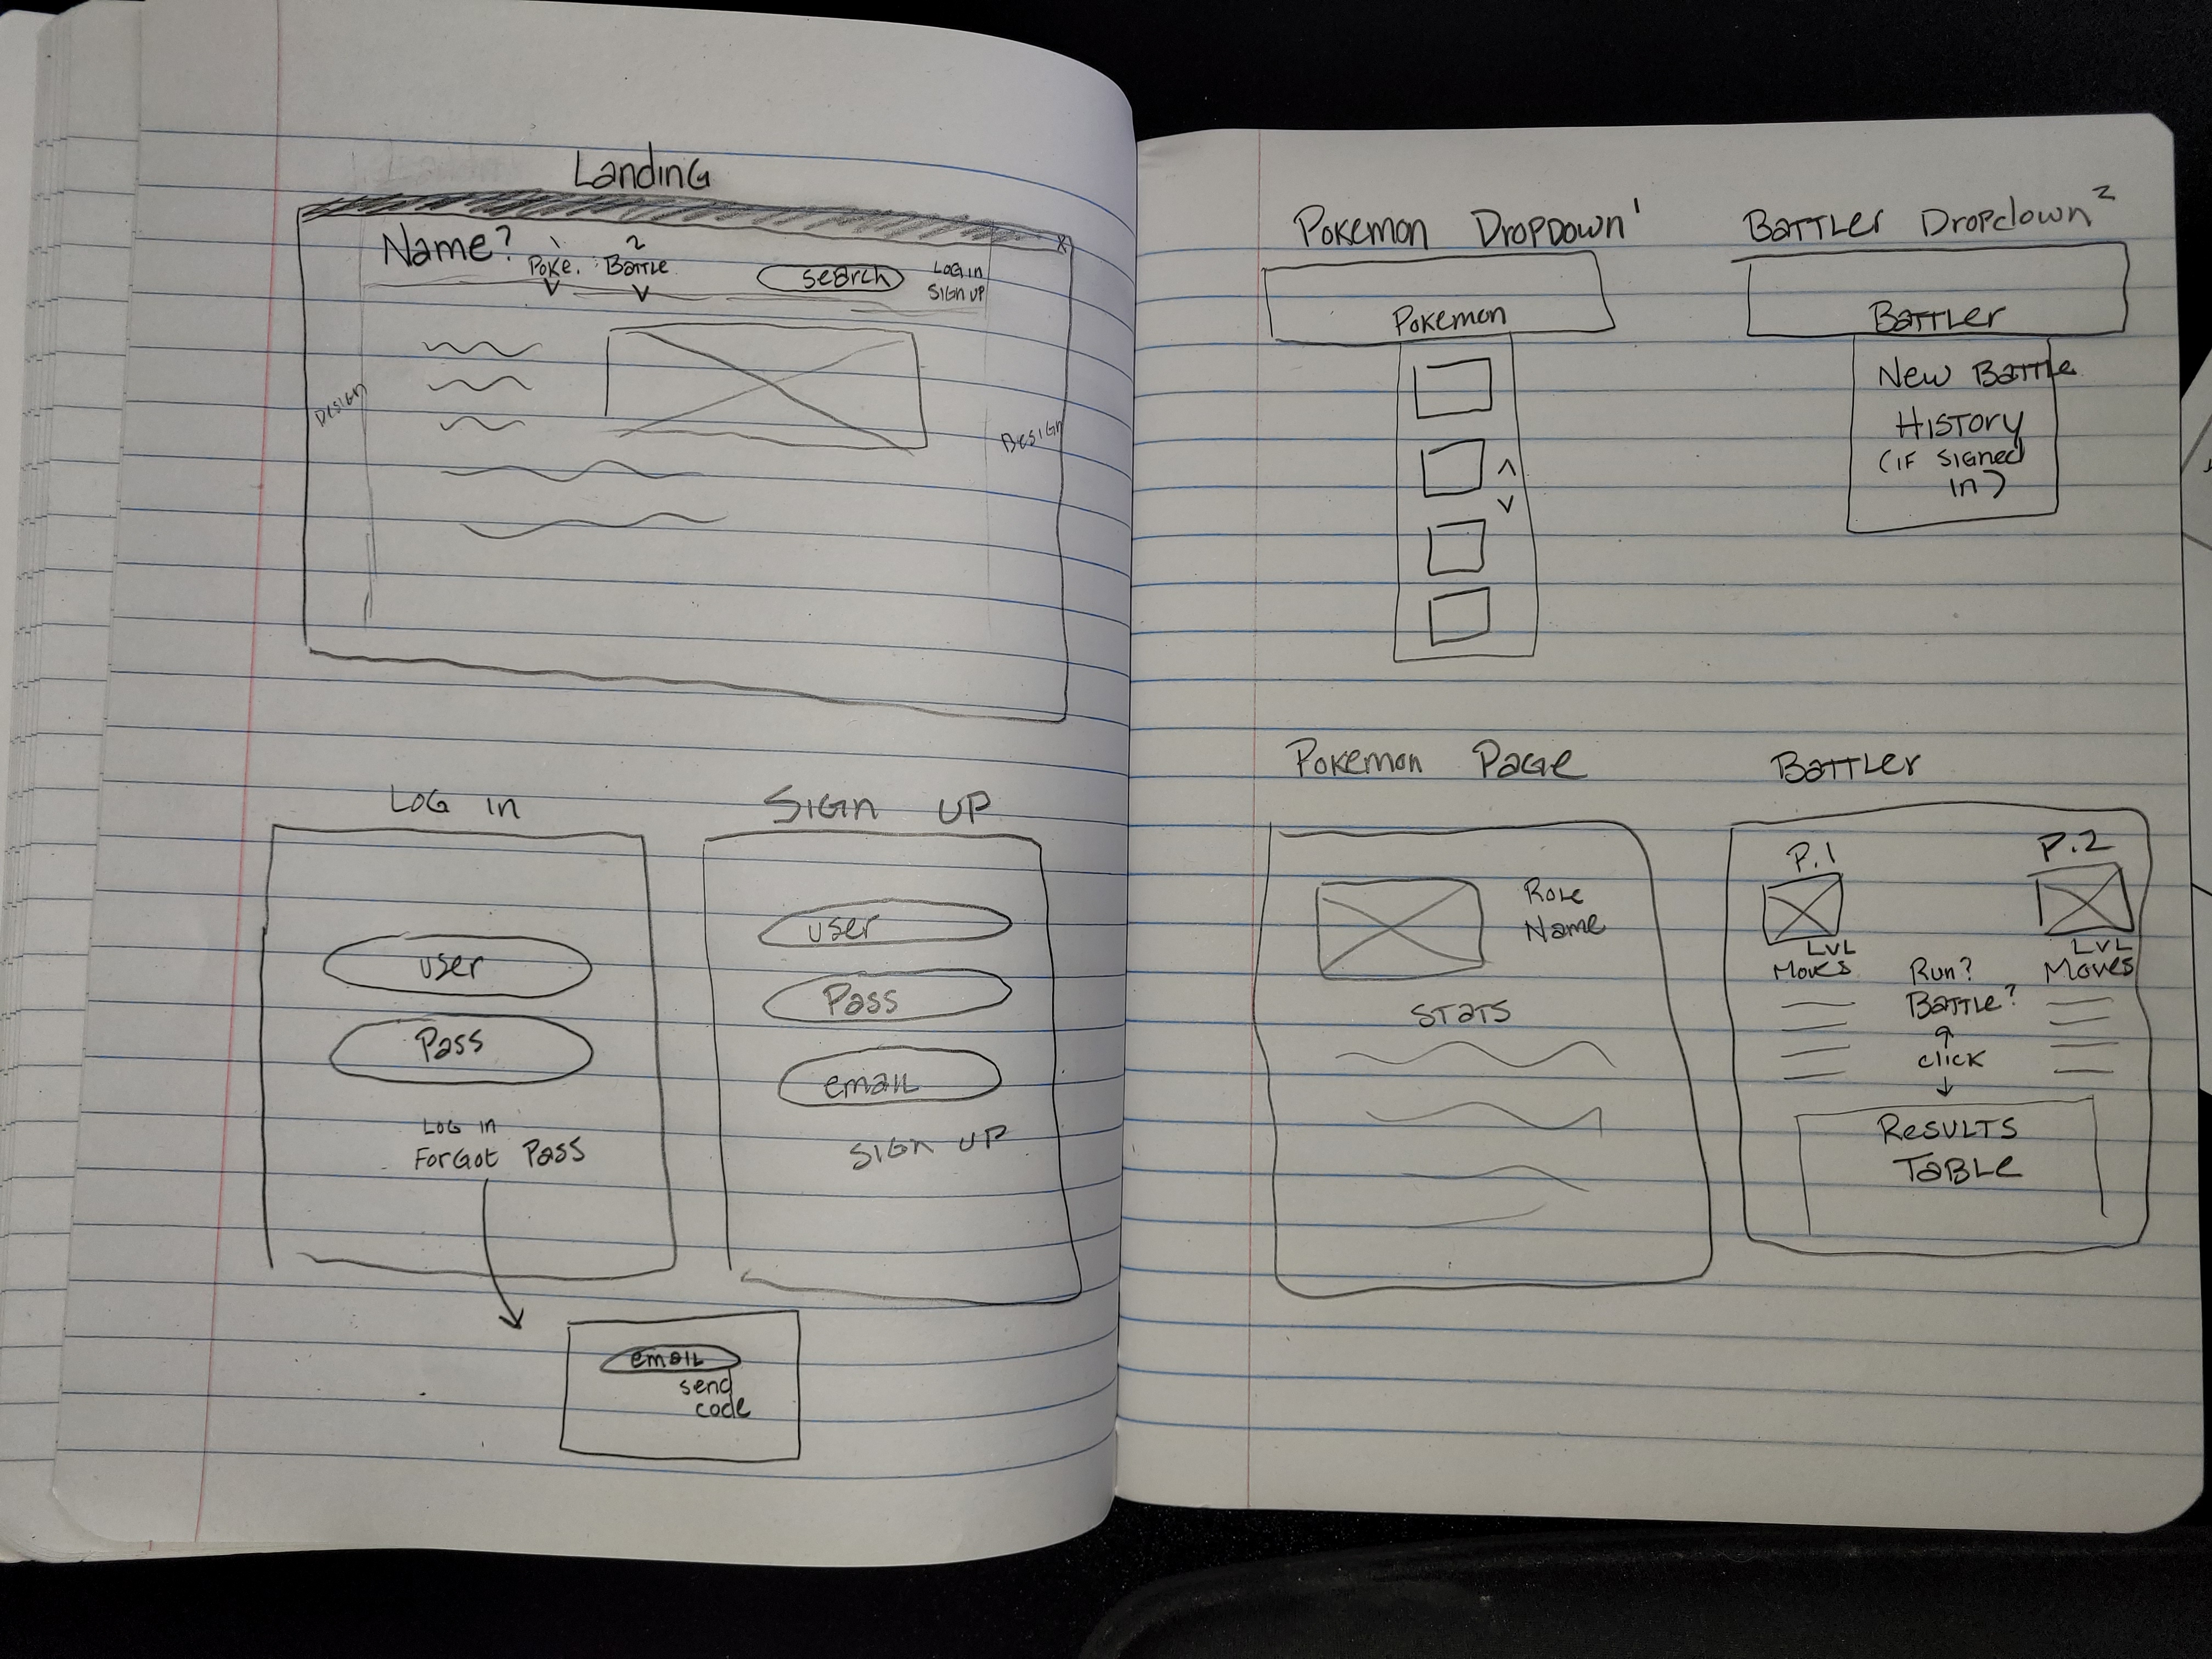 Landing
Name?
1
Poke.
2
Battle
search
Log in
Sign up
Design
Design
Log in
user
Pass
Log in
Forgot Pass
email
send
code
Sign up
user
Pass
email
Sign up
Pokemon Dropdown 1
Pokemon
Battler Dropdown 2
Battler
New Battle
History
(if signed
in)
Pokemon Page
Role
Name
Stats
Battler
P.1
LVL
Moves
P.2
LVL
Moves
Run?
Battle?
click
Results
Table